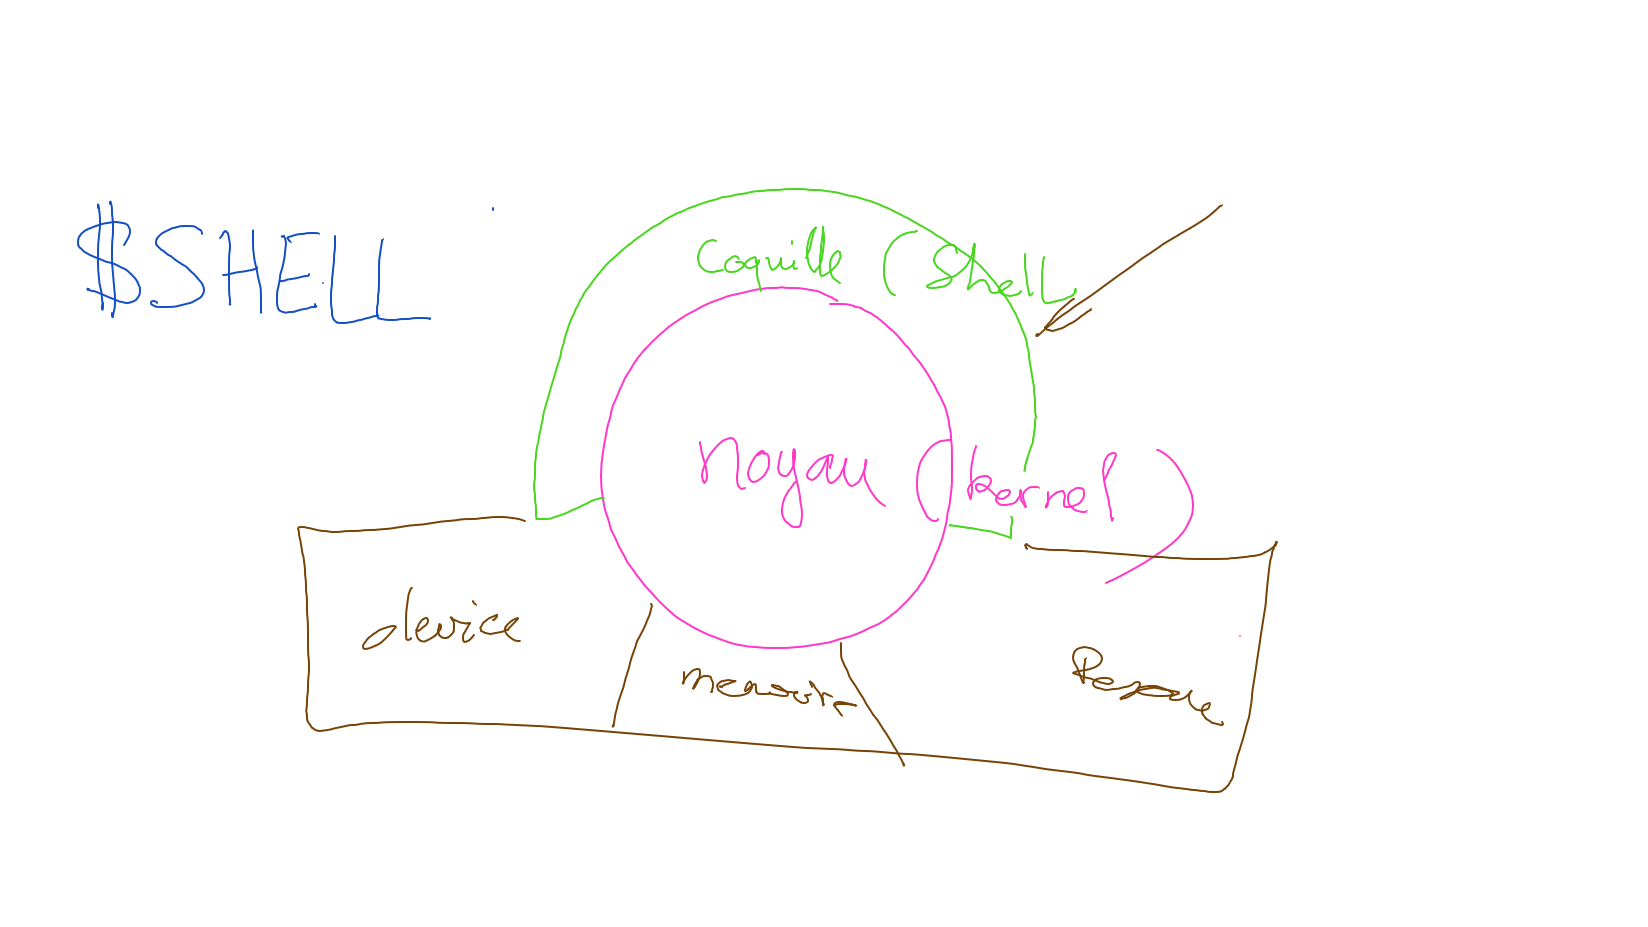 $SHELL
Coquille (Shell
noyau (kernel)
device